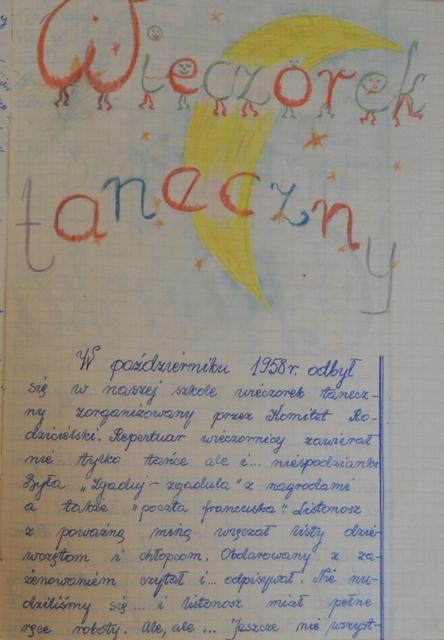 Wieczorek
taneczny
W październiku 1958r. odbył
się w naszej szkole wieczorek tanecz-
ny zorganizowany przez Komitet Ro-
dzicielski. Repertuar wieczornicy zawierał
nie tylko tańce ale i... niespodzianki.
Była „Zgaduj-zgadula" z nagrodami
a także „poczta francuska". Listonosz
z poważną miną wręczał listy dzie-
wczętom i chłopcom. Obdarowany z za-
żenowaniem czytał i... odpisywał. Nie nu-
dziliśmy się... i listonosz miał pełne
ręce roboty. Ale, ale... Jeszcze nie wszyst-